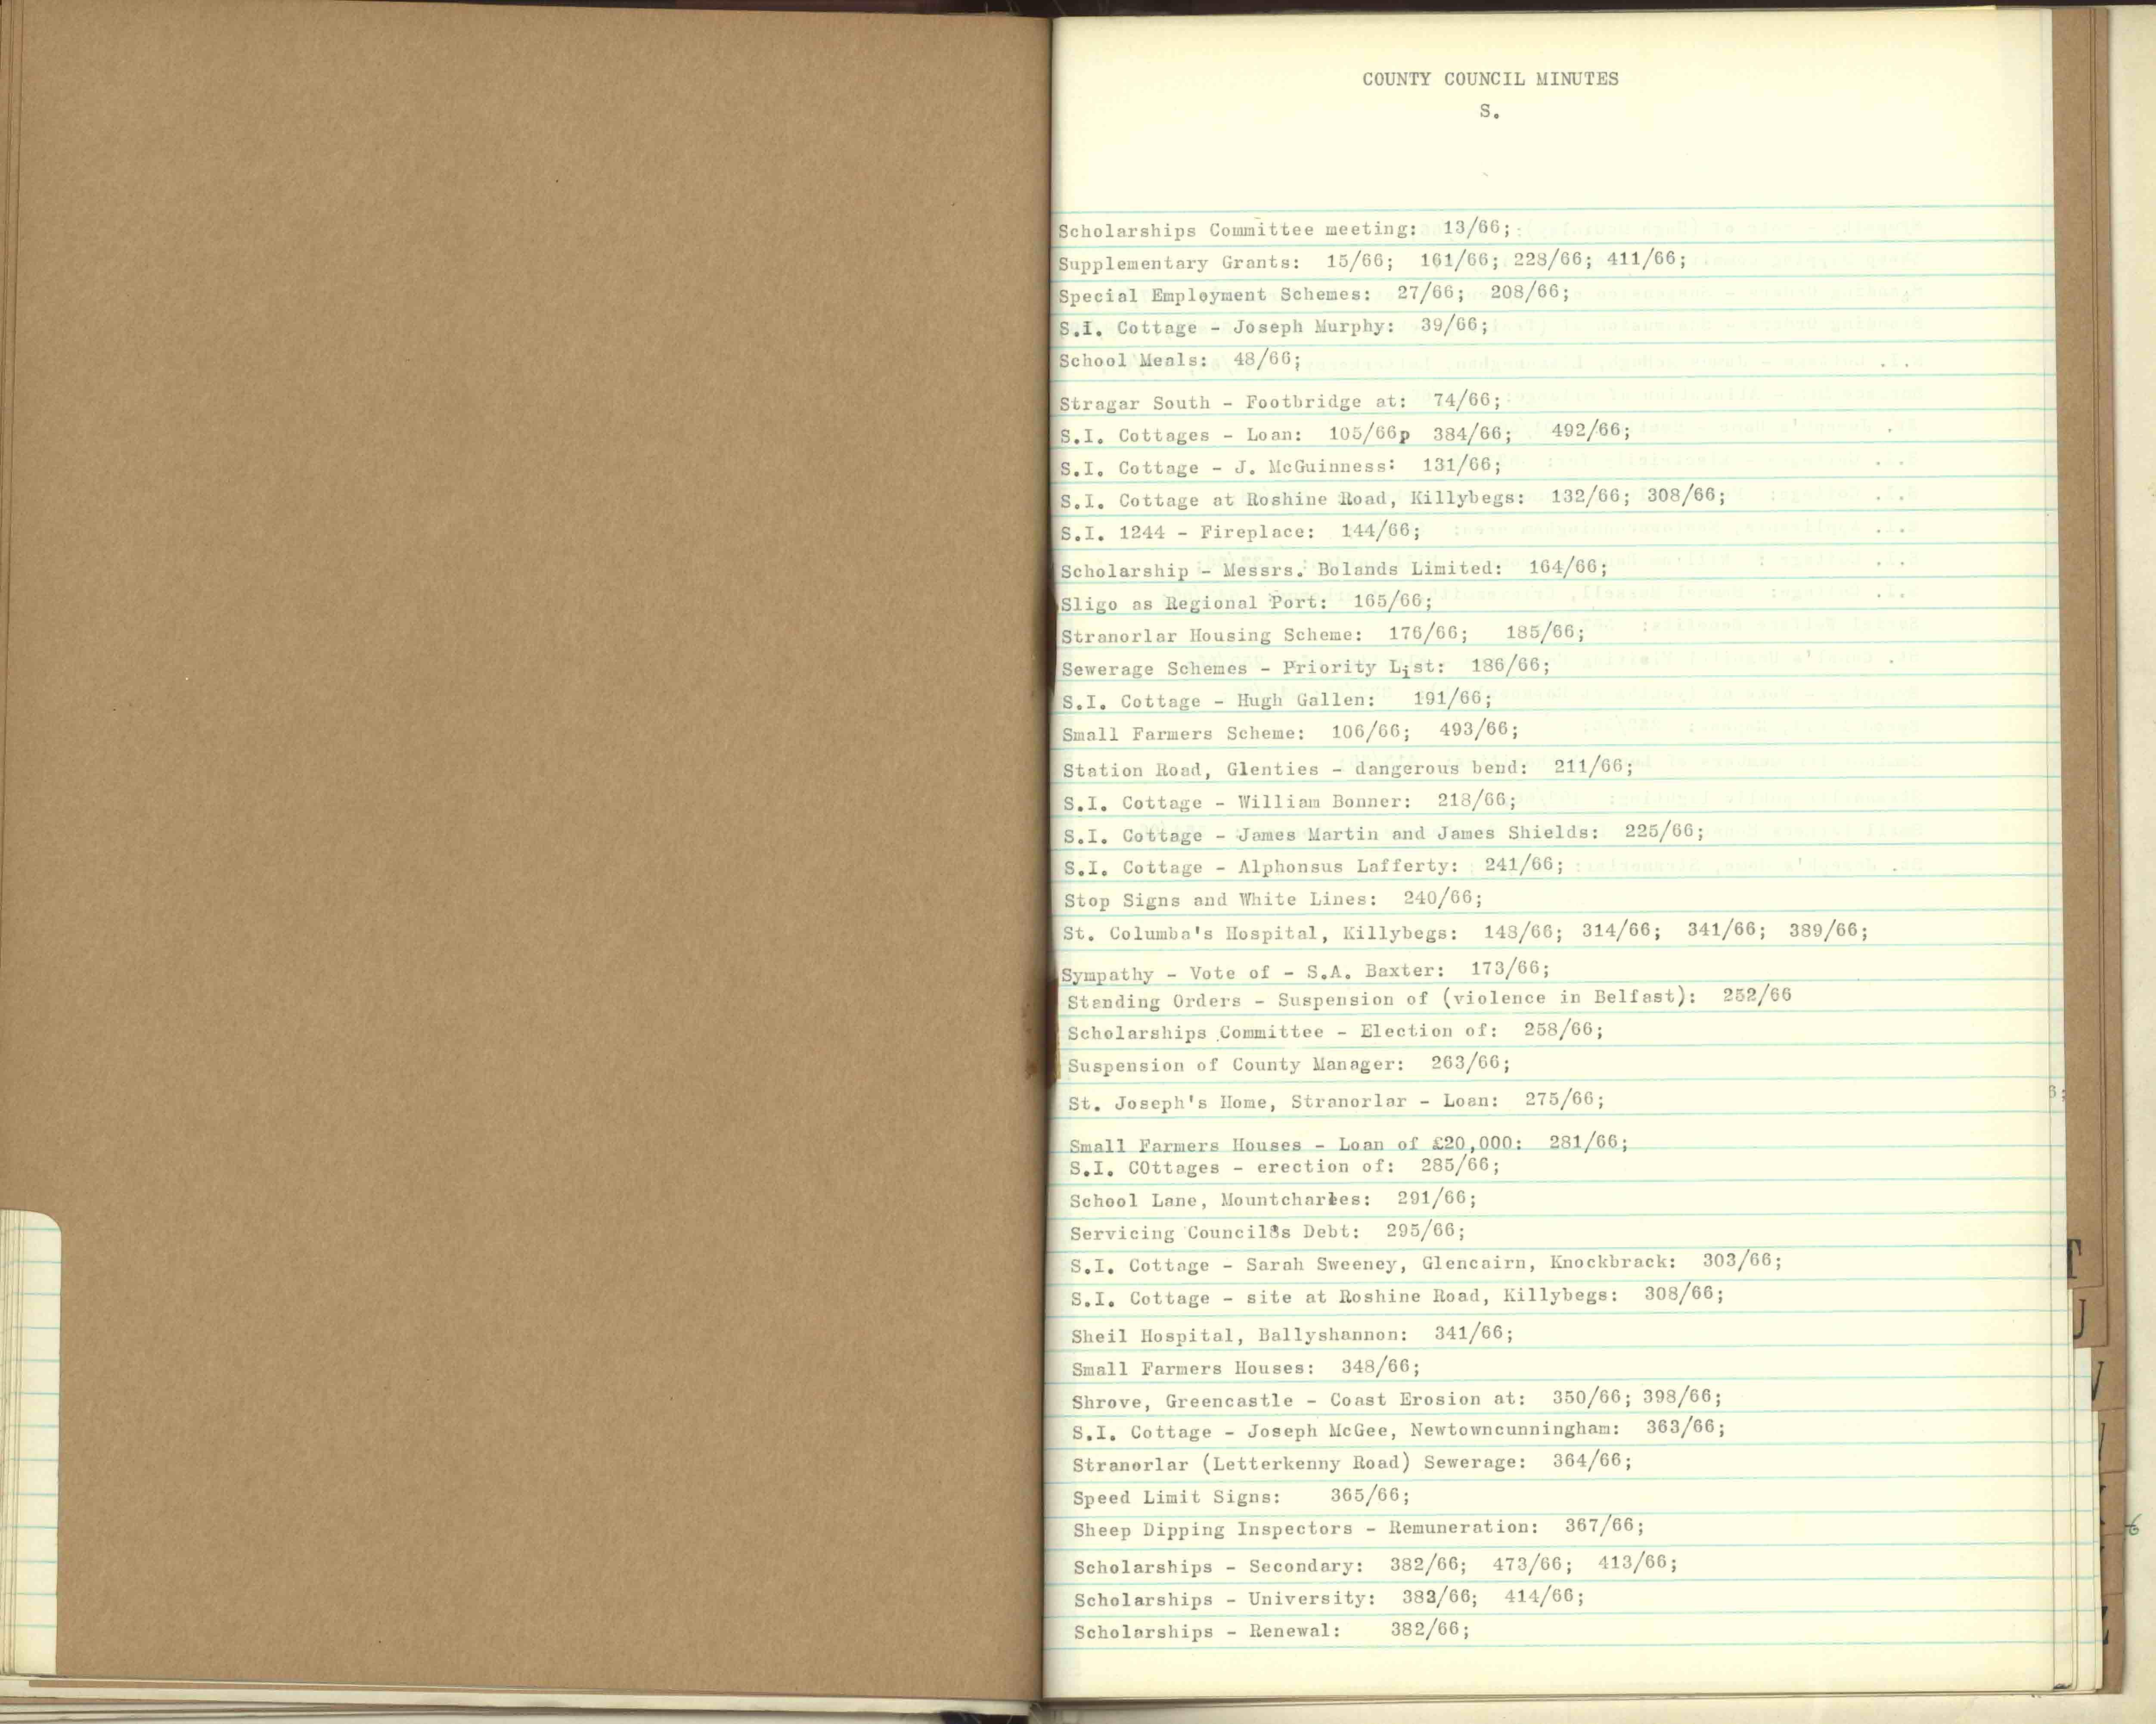 COUNTY COUNCIL MINUTES
S.
Scholarships Committee meeting: 13/66;
Supplementary Grants: 15/66; 161/66; 228/66; 411/66;
Special Employment Schemes: 27/66; 208/66;
S.I. Cottage - Joseph Murphy: 39/66;
School Meals: 48/66;
Stragar South - Footbridge at: 74/66;
S.I. Cottages - Loan: 105/66p 384/66; 492/66;
S.I. Cottage - J. McGuinness: 131/66;
S.I. Cottage at Roshine Road, Killybegs: 132/66; 308/66;
S.I. 1244 - Fireplace: 144/66;
Scholarship - Messrs. Bolands Limited: 164/66;
Sligo as Regional Port: 165/66;
Stranorlar Housing Scheme: 176/66; 185/66;
Sewerage Schemes - Priority List: 186/66;
S.I. Cottage - Hugh Gallen: 191/66;
Small Farmers Scheme: 106/66; 493/66;
Station Road, Glenties - dangerous bend: 211/66;
S.I. Cottage - William Bonner: 218/66;
S.I. Cottage - James Martin and James Shields: 225/66;
S.I. Cottage - Alphonsus Lafferty: 241/66;
Stop Signs and White Lines: 240/66;
St. Columba's Hospital, Killybegs: 148/66; 314/66; 341/66; 389/66;
Sympathy - Vote of - S.A. Baxter: 173/66;
Standing Orders - Suspension of (violence in Belfast): 252/66
Scholarships Committee - Election of: 258/66;
Suspension of County Manager: 263/66;
St. Joseph's Home, Stranorlar - Loan: 275/66;
Small Farmers Houses - Loan of £20,000: 281/66;
S.I. COttages - erection of: 285/66;
School Lane, Mountcharles: 291/66;
Servicing Council8s Debt: 295/66;
S.I. Cottage - Sarah Sweeney, Glencairn, Knockbrack: 303/66;
S.I. Cottage - site at Roshine Road, Killybegs: 308/66;
Sheil Hospital, Ballyshannon: 341/66;
Small Farmers Houses: 348/66;
Shrove, Greencastle - Coast Erosion at: 350/66; 398/66;
S.I. Cottage - Joseph McGee, Newtowncunningham: 363/66;
Stranorlar (Letterkenny Road) Sewerage: 364/66;
Speed Limit Signs: 365/66;
Sheep Dipping Inspectors - Remuneration: 367/66;
Scholarships - Secondary: 382/66; 473/66; 413/66;
Scholarships - University: 382/66; 414/66;
Scholarships - Renewal: 382/66;
T
U
V